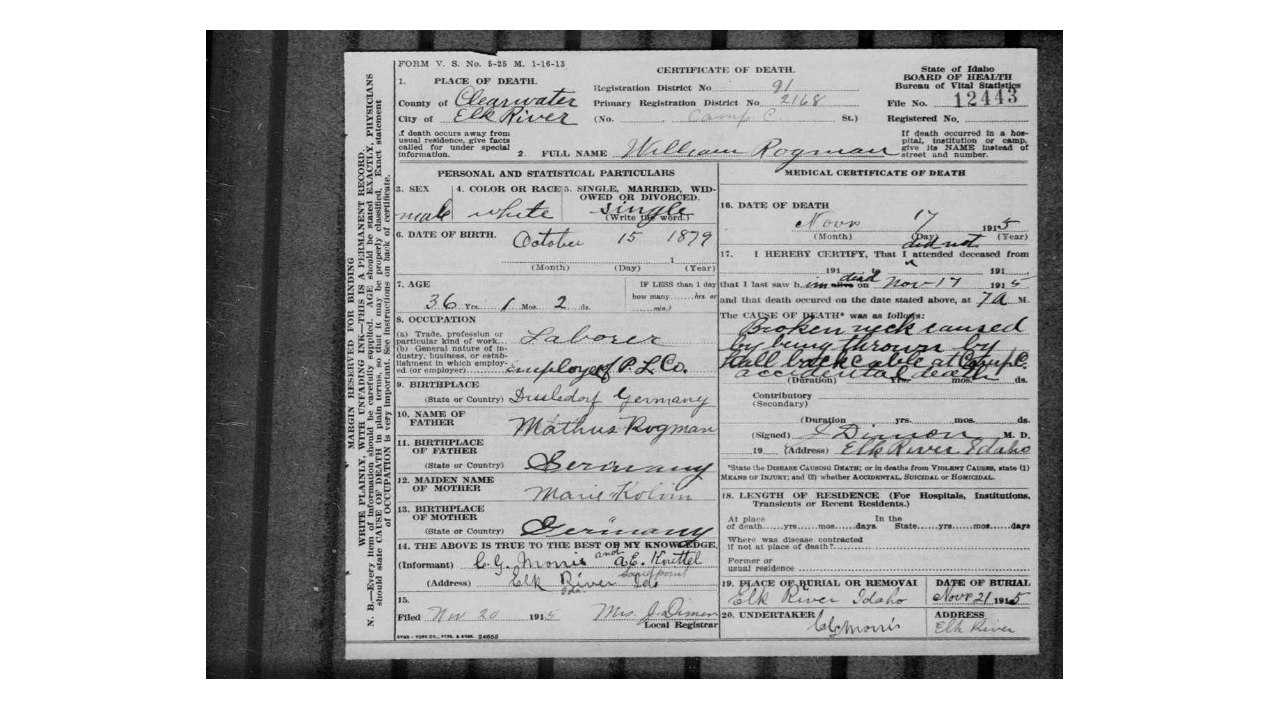 FORM V. S. No. 5-25 M. 1-16-13
CERTIFICATE OF DEATH.
State of Idaho
BOARD OF HEALTH
Bureau of Vital Statistics
File No. 12443
Registered No.
1. PLACE OF DEATH.
County of Clearwater
City of Elk River
Registration District No 91
Primary Registration District No 2168
(No. Camp C. St.)
If death occurs away from
usual residence, give facts
called for under special
information.
If death occurred in a hos-
pital, institution or camp,
give its NAME instead of
street and number.
2. FULL NAME William Rogman
MARGIN RESERVED FOR BINDING
WRITE PLAINLY, WITH UNFADING INK—THIS IS A PERMANENT RECORD.
N. B.—Every item of information should be carefully supplied. AGE should be stated EXACTLY, PHYSICIANS
should state CAUSE OF DEATH in plain terms, so that it may be properly classified. Exact statement
of OCCUPATION is very important. See instructions on back of certificate.
PERSONAL AND STATISTICAL PARTICULARS
3. SEX
male
4. COLOR OR RACE
white
5. SINGLE, MARRIED, WID-
OWED OR DIVORCED.
single
(Write the word.)
6. DATE OF BIRTH.
October 15 1879
(Month) (Day) (Year)
7. AGE
36 Yrs. 1 Mos. 2 ds.
IF LESS than 1 day
how many ......hrs. or
......min.?
8. OCCUPATION
(a) Trade, profession or
particular kind of work.
Laborer
(b) General nature of in-
dustry, business, or estab-
lishment in which employ-
ed (or employer)
employe of P. L. Co.
9. BIRTHPLACE
(State or Country) Dusledorf Germany
10. NAME OF
FATHER
Mathus Rogman
11. BIRTHPLACE
OF FATHER
(State or Country) Germany
12. MAIDEN NAME
OF MOTHER
Marie
13. BIRTHPLACE
OF MOTHER
(State or Country) Germany
14. THE ABOVE IS TRUE TO THE BEST OF MY KNOWLEDGE.
(Informant) C. G. Morris and A. E. Knettel
(Address) Elk River Ida. Sandpoint Ida
15.
Filed Nov 20 1915 Mrs. J. Dimon
Local Registrar
SYMS - YORK CO., PTRS. & BNDS. 24652
MEDICAL CERTIFICATE OF DEATH
16. DATE OF DEATH
Novr 17 1915
(Month) (Day) (Year)
17. I HEREBY CERTIFY, That I did not attended deceased from
191 to 191
that I last saw him alive dead on Nov 17 1915
and that death occured on the date stated above, at 7 A M.
The CAUSE OF DEATH* was as follows:
Broken neck caused
by being thrown by
hall back cable at Camp C.
accidental death
(Duration) Yrs. mos. ds.
Contributory
(Secondary)
(Duration yrs. mos. ds.
(Signed) J Dimon M. D.
19 (Address) Elk River Idaho
*State the DISEASE CAUSING DEATH; or in deaths from VIOLENT CAUSES, state (1)
MEANS OF INJURY; and (2) whether ACCIDENTAL, SUICIDAL or HOMICIDAL.
18. LENGTH OF RESIDENCE (For Hospitals, Institutions,
Transients or Recent Residents.)
At place
of death......yrs......mos......days.
In the
State......yrs......mos......days
Where was disease contracted
if not at place of death?
Former or
usual residence
19. PLACE OF BURIAL OR REMOVAL
Elk River Idaho
DATE OF BURIAL
Novr 21 1915
20. UNDERTAKER
C G Morris
ADDRESS
Elk River